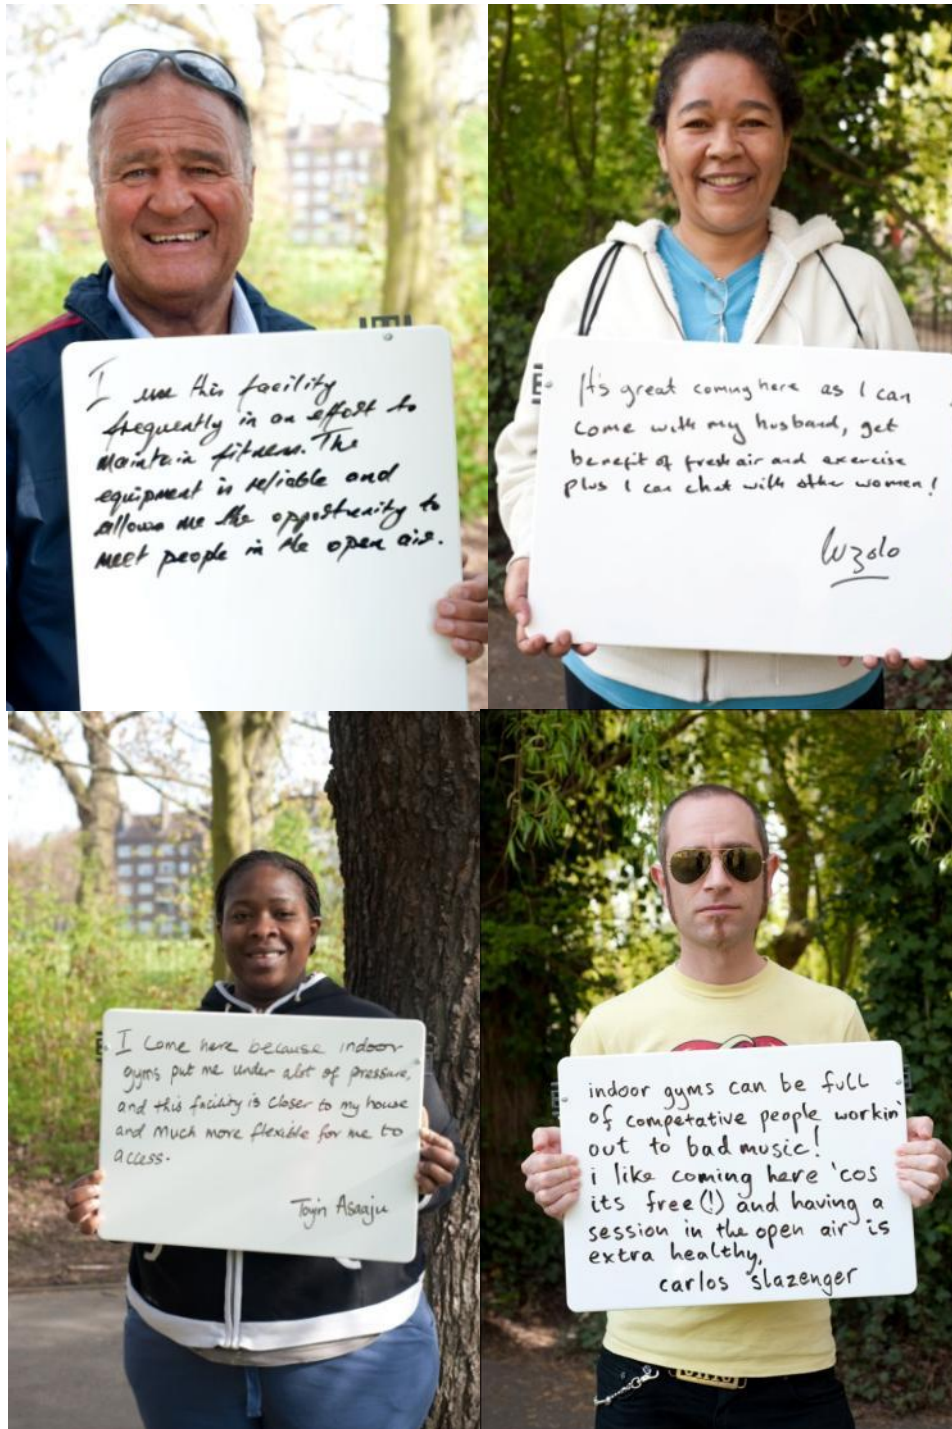 I use this facility
frequently in an effort to
maintain fitness. The
equipment is reliable and
allows me the opportunity to
meet people in the open air.
It's great coming here as I can
come with my husband, get
benefit of fresh air and exercise
plus I can chat with other women!
luzolo
I come here because indoor
gyms put me under alot of pressure,
and this facility is closer to my house
and much more flexible for me to
access.
Toyin Asaaju
indoor gyms can be full
of competative people workin'
out to bad music!
i like coming here 'cos
its free (!) and having a
session in the open air is
extra healthy,
carlos slazenger